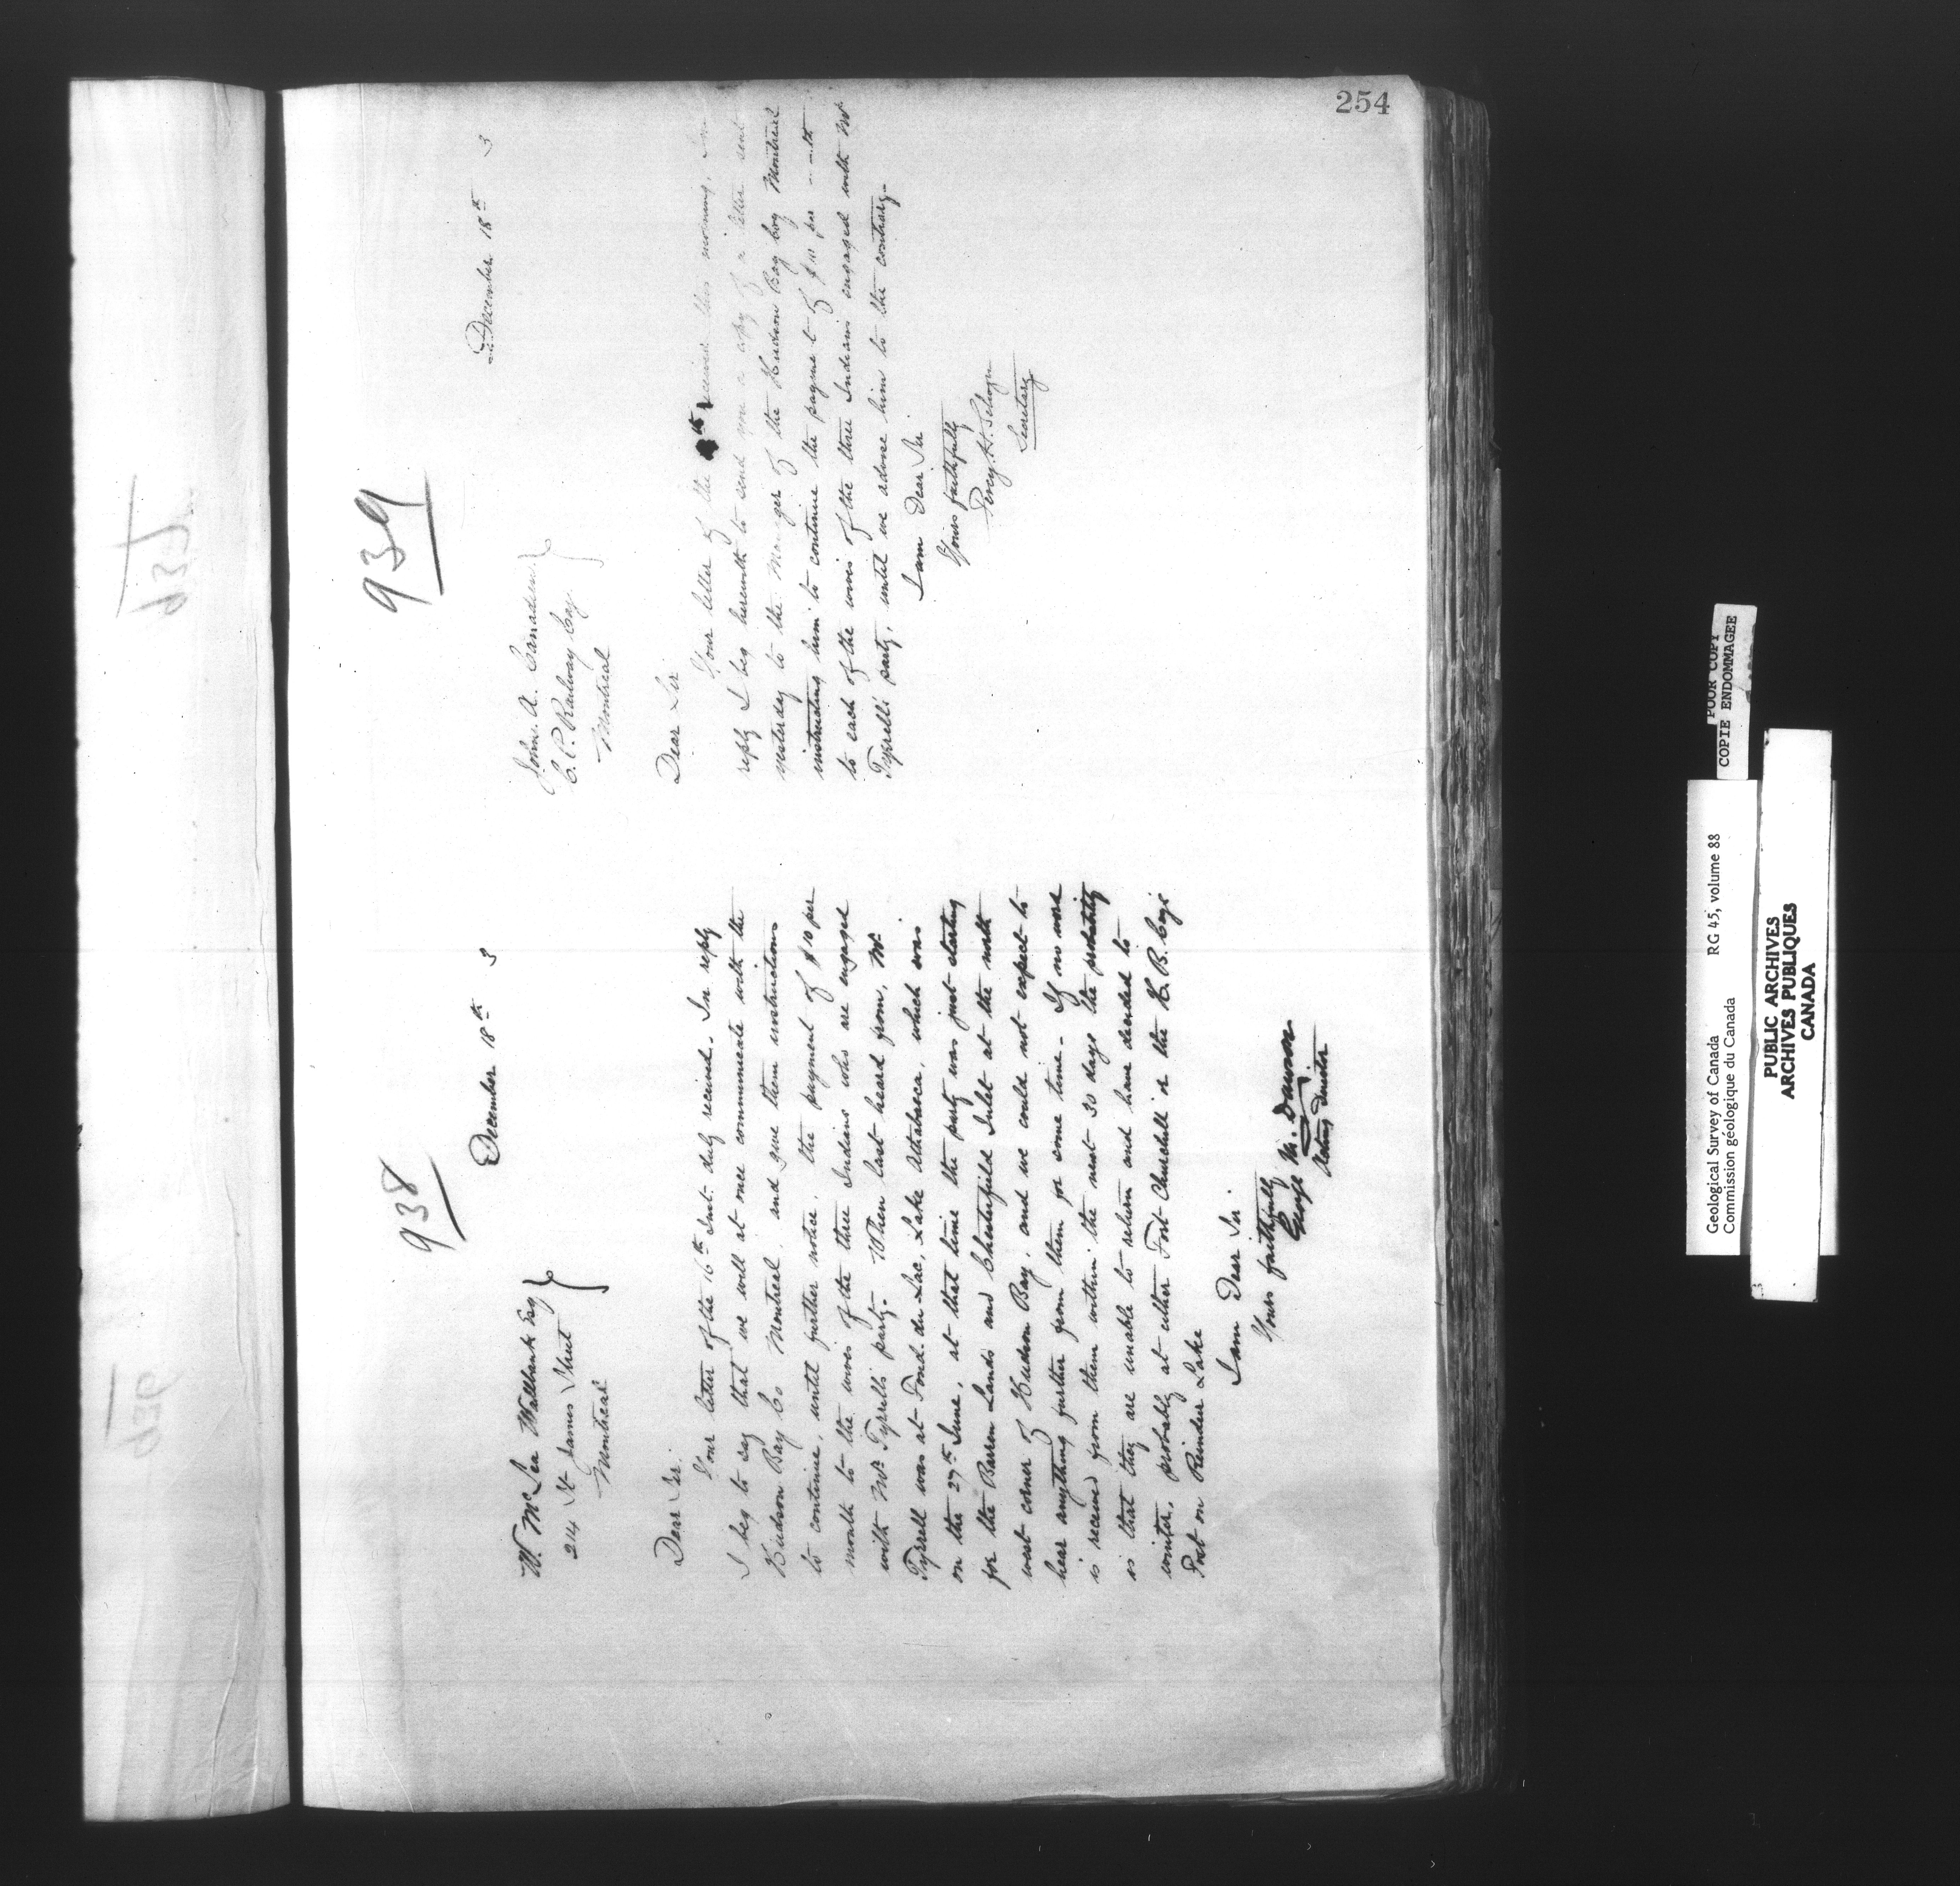 254
938
December 18th 3
W. McLea Walbank Esq
214 St James Street
Montreal
Dear Sir.
Your letter of the 16th Inst. duly received. In reply
I beg to say that we will at once communicate with the
Hudson Bay Co Montreal. and give them instructions
to continue, until further notice, the payment of $10 per
month to the wives of the three Indians who are engaged
with Mr Tyrrell's party. When last heard from, Mr
Tyrrell was at Fond. du Lac, Lake Athabasca, which was
on the 27th June, at that time the party was just starting
for the Barren Lands and Chesterfield Inlet at the north
west corner of Hudson Bay. and we could not expect to
hear anything further from them for some time. If no word
is received from them within the next 30 days the probability
is that they are unable to return and have decided to
winter, probably at either Fort Churchill or the H. B. Coys
Post on Reindeer Lake
I am Dear Sir
Yours faithfully
George M. Dawson
Acting Director
939
December 18th 3
John. A.
C. P. Railway Coy.
Montreal
Dear Sir
Your letter of the received this morning. In
reply I beg herewith to send you a copy of a letter sent
yesterday to the Manager of the Hudson Bay Coy Montreal
instructing him to continue the payment of $10 per
to each of the wives of the three Indians engaged with Mr
Tyrrell's party, until we advise him to the contrary.
I am Dear Sir
Yours faithfully
Percy. H. Selwyn
Secretary
POOR COPY
COPIE ENDOMMAGEE
Geological Survey of Canada RG 45, volume 88
Commission géologique du Canada
PUBLIC ARCHIVES
ARCHIVES PUBLIQUES
CANADA